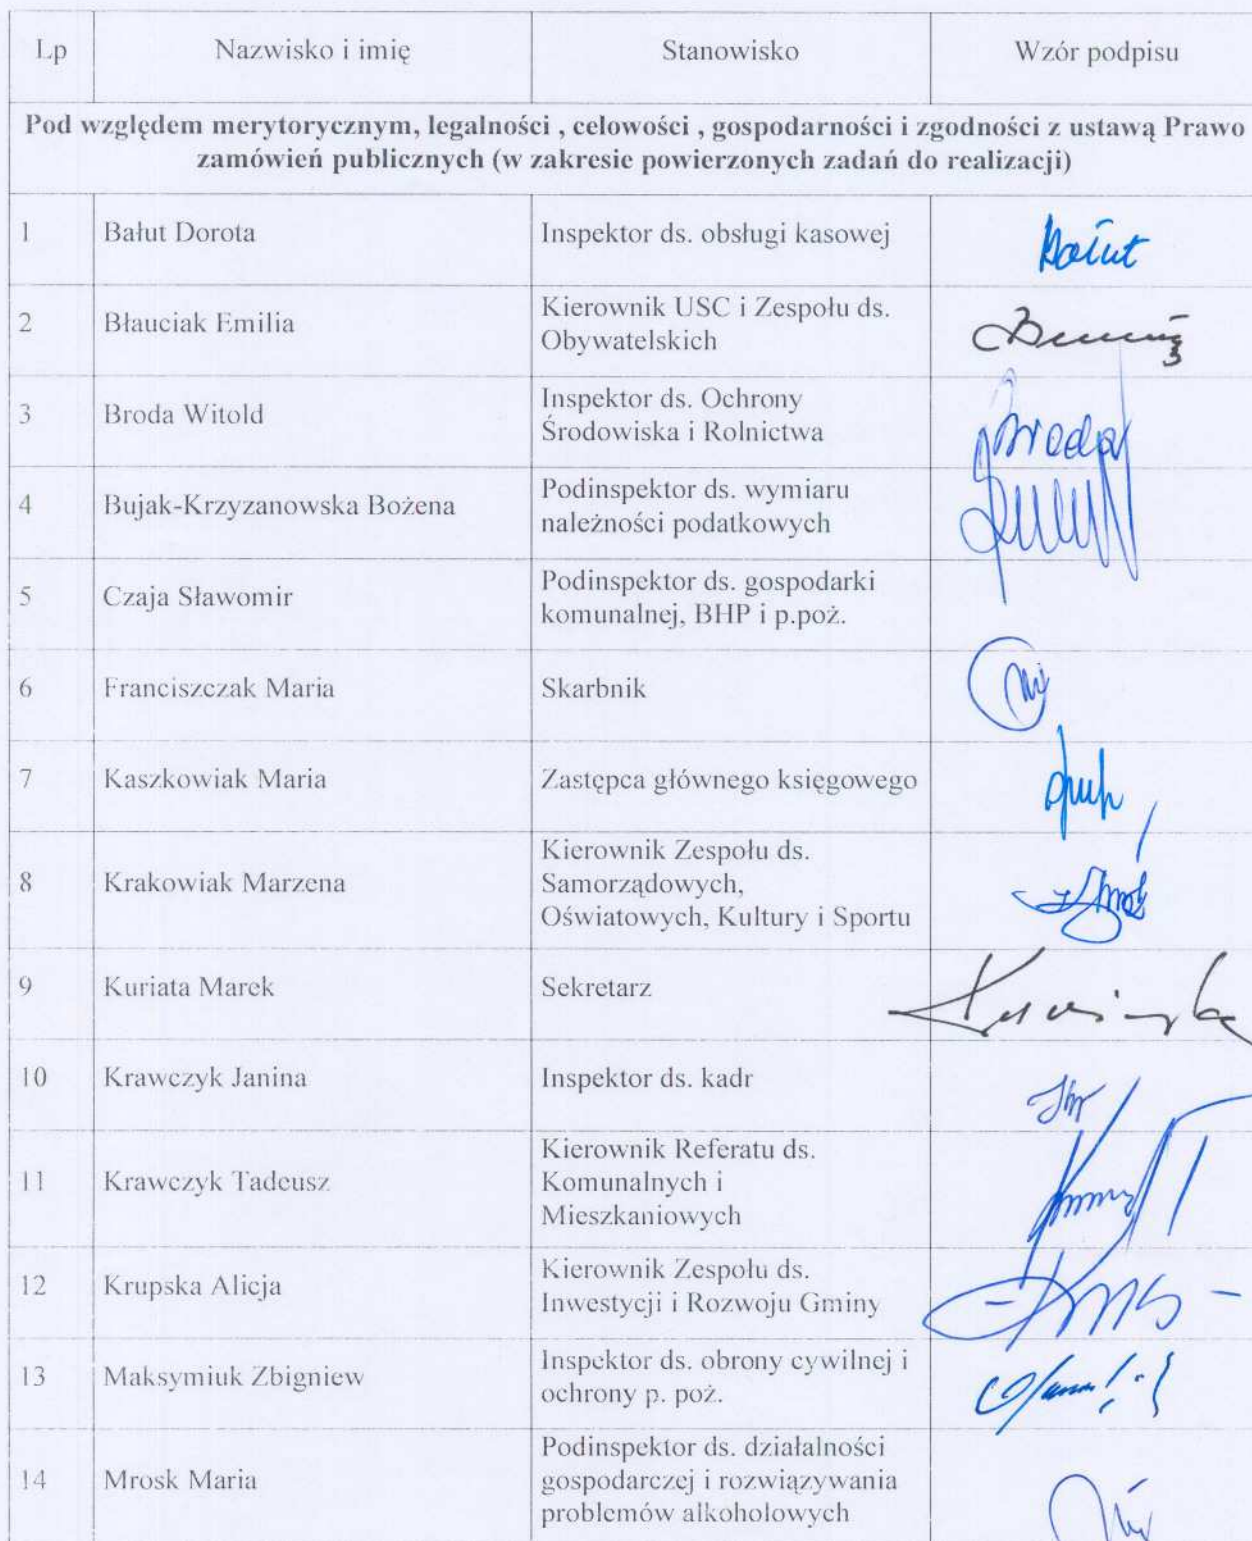 Lp Nazwisko i imię Stanowisko Wzór podpisu
Pod względem merytorycznym, legalności , celowości , gospodarności i zgodności z ustawą Prawo
zamówień publicznych (w zakresie powierzonych zadań do realizacji)
1 Bałut Dorota Inspektor ds. obsługi kasowej Bałut
2 Błauciak Emilia Kierownik USC i Zespołu ds.
Obywatelskich
3 Broda Witold Inspektor ds. Ochrony
Środowiska i Rolnictwa Broda
4 Bujak-Krzyzanowska Bożena Podinspektor ds. wymiaru
należności podatkowych
5 Czaja Sławomir Podinspektor ds. gospodarki
komunalnej, BHP i p.poż.
6 Franciszczak Maria Skarbnik
7 Kaszkowiak Maria Zastępca głównego księgowego
8 Krakowiak Marzena Kierownik Zespołu ds.
Samorządowych,
Oświatowych, Kultury i Sportu
9 Kuriata Marek Sekretarz
10 Krawczyk Janina Inspektor ds. kadr
11 Krawczyk Tadeusz Kierownik Referatu ds.
Komunalnych i
Mieszkaniowych
12 Krupska Alicja Kierownik Zespołu ds.
Inwestycji i Rozwoju Gminy
13 Maksymiuk Zbigniew Inspektor ds. obrony cywilnej i
ochrony p. poż.
14 Mrosk Maria Podinspektor ds. działalności
gospodarczej i rozwiązywania
problemów alkoholowych